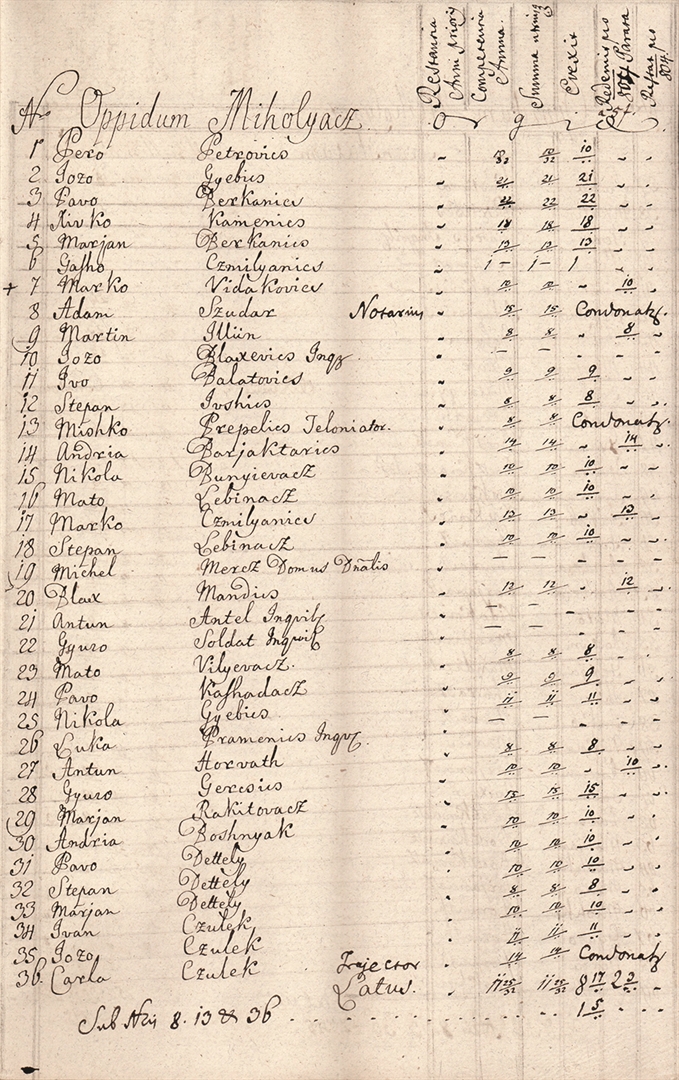 Restantia Anni prioris
Competentia Annua
Summa utriusq
Evexit
Redemit pro 804 Parata
Restat pro 804
Nr Oppidum Miholyacz.
1 Pero Petrovics 10
2 Jozo Gyebics 21 21 21
3 Pavo Berkanics 22 22 22
4 Xivko Kamenics 18 18 18
5 Marjan Berkanics 13 13 13
6 Gasho Czmilyanics 1 – 1 – 1
+ 7 Marko Vidakovics 10 10 10
8 Adam Szudar Notarius 15 15 Condonat
9 Martin Illin 8 8 8
10 Jozo Blaxevics Inq – –
11 Ivo Balatovics 9 9 9
12 Stepan Ivshics 8 8 8
13 Mishko Prepelics Teloniator. 8 8 Condonat
14 Andria Barjaktarics 14 14 14
15 Nikola Bunyievacz 10 10 10
16 Mato Lebinacz 10 10 10
17 Marko Czmilyanics 13 13 13
18 Stepan Lebinacz 10 10 10
19 Michel Mercz Domus Dnalis – –
20 Blax Mandics 12 12 12
21 Antun Antel Inqvil – –
22 Gyuro Soldat Inqvil – –
23 Mato Vilyevacz. 8 8 8
24 Pavo Kashadacz 9 9 9
25 Nikola Gyebics 11 11 11
26 Luka Pramenics Inqv. – –
27 Antun Horvath 8 8 8
28 Gyuro Gercsics 10 10 10
29 Marjan Rakitovacz 15 15 15
30 Andria Boshnyak 10 10 10
31 Pavo Dettely 10 10 10
32 Stepan Dettely 10 10 10
33 Marjan Dettely 8 8 8
34 Ivan Czulek 10 10 10
35 Jozo Czulek 11 11 11
36 Carla Czulek Trajector 14 14 Condonat
Latus. 11 25/32 11 25/32 8 17 2 3
Sub Nris 8. 13 & 36 . . . . . . . . . . 1 5